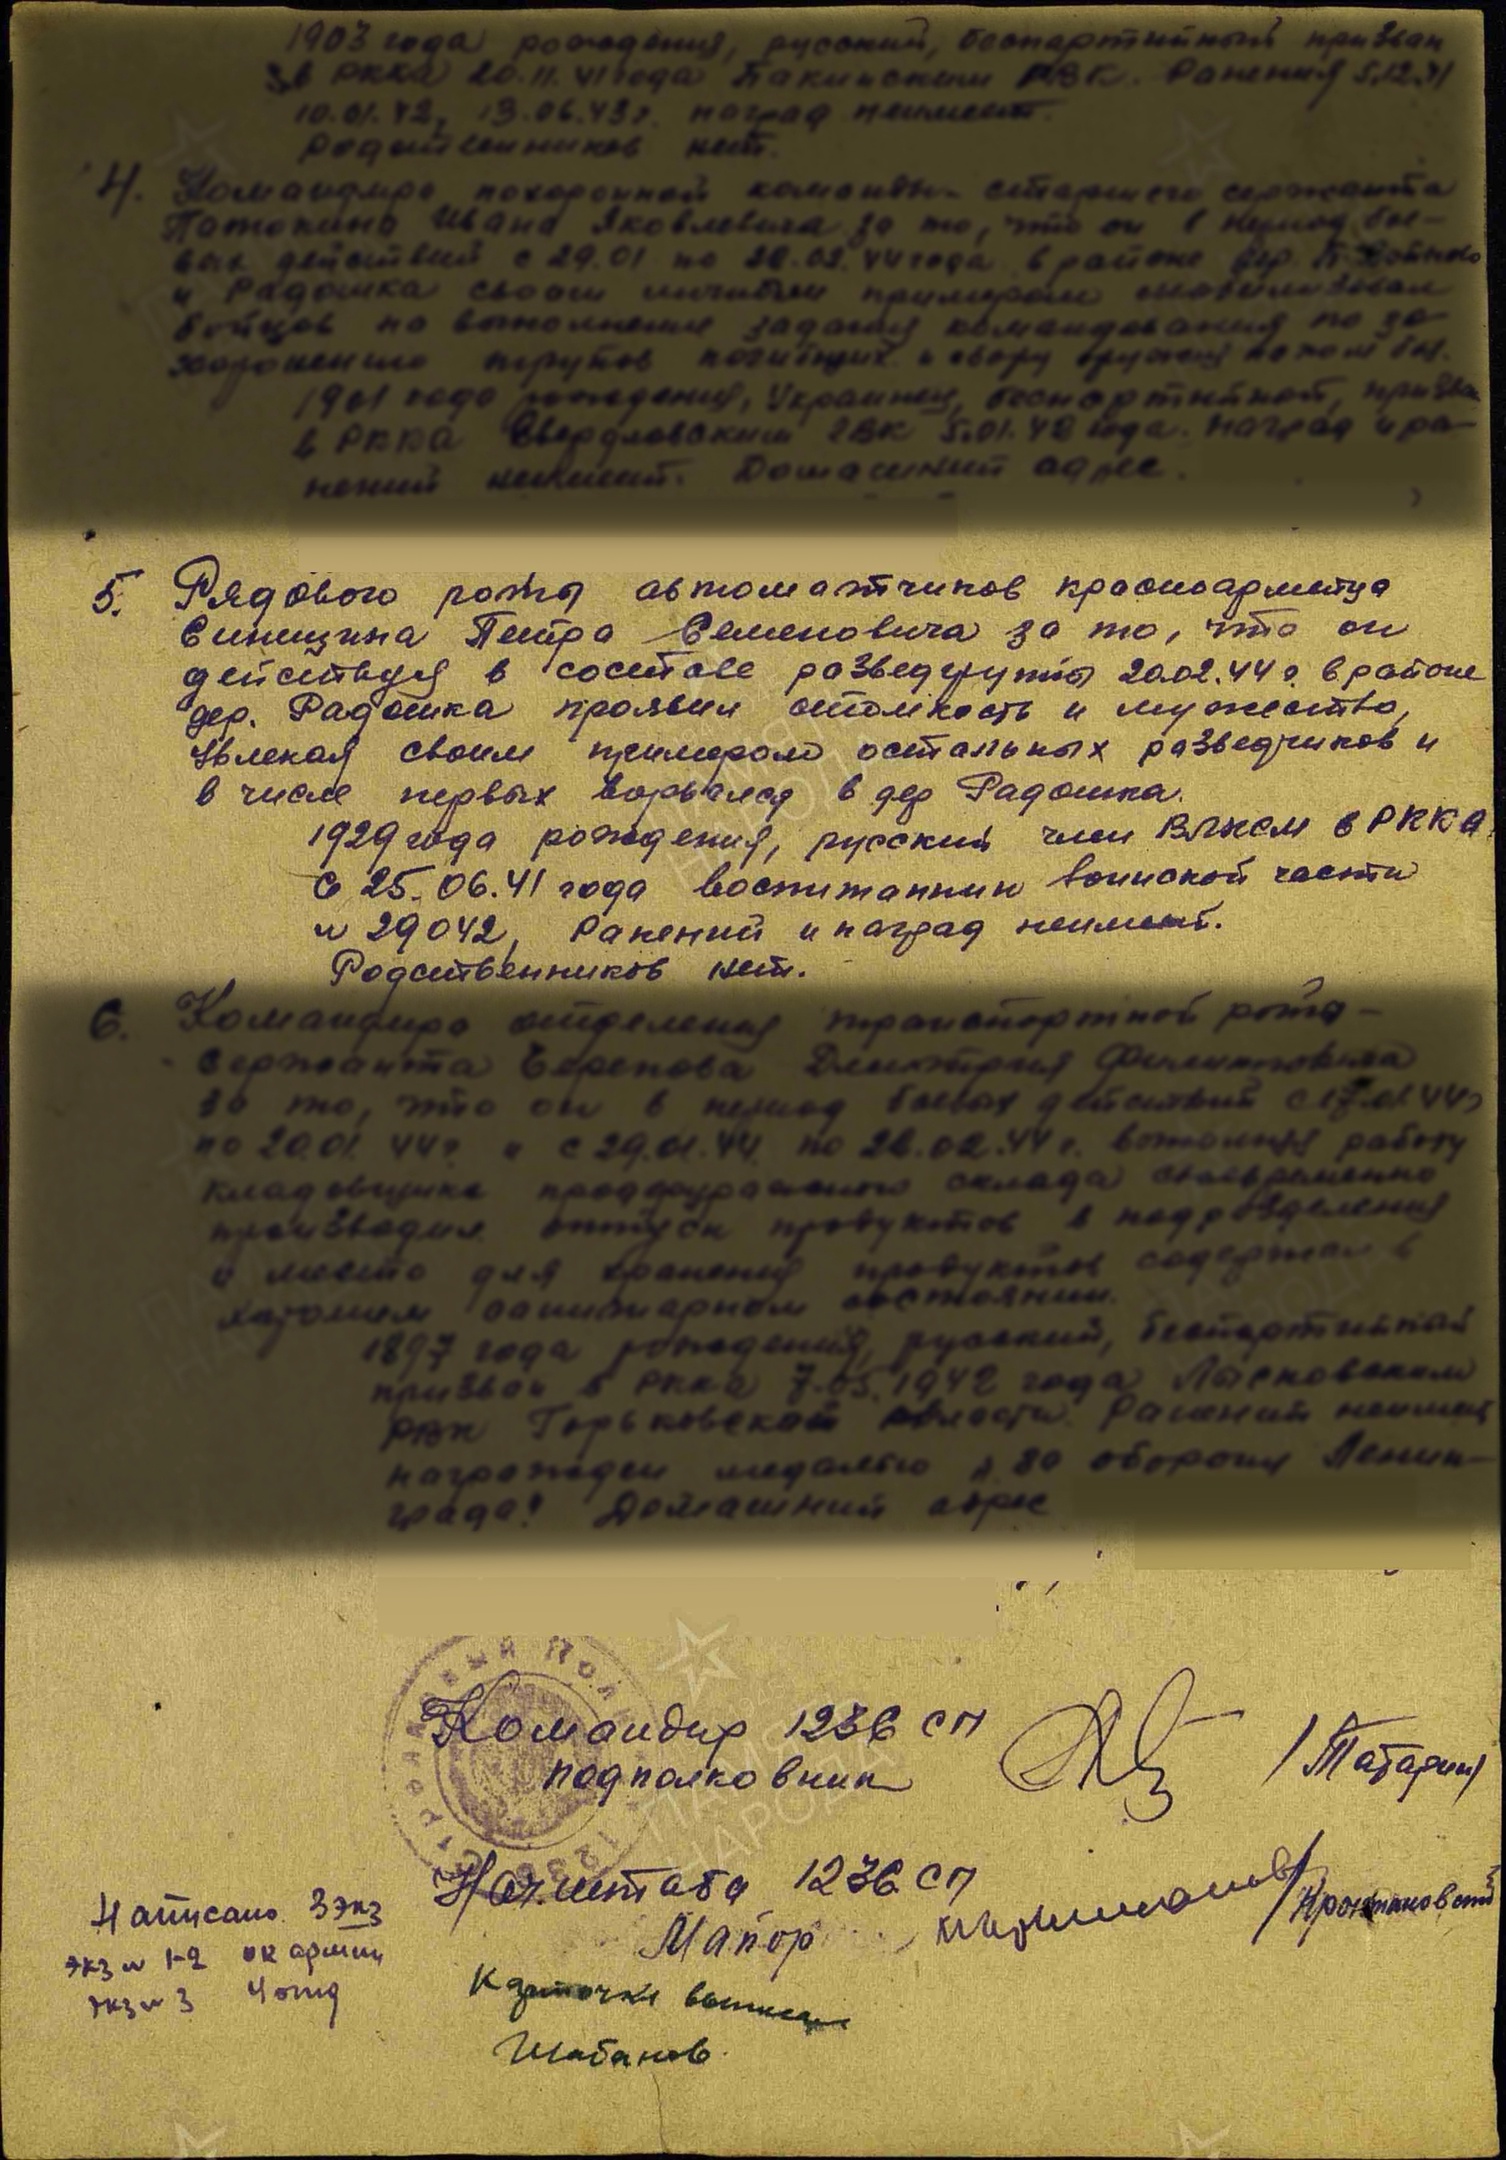 1903 года рождения, русский, беспартийный призван
в РККА 20.11.41 года РВК. Ранения 5.12.41
10.01.42, 13.06.43г. наград неимеет.
Родственников нет.
4. Командира похоронной команды - старшего сержанта
Ивана Яковлевича за то, что он в период бое-
вых действий с 29.01 по 28.02.44 года в районе дер.
и Радошка своим личным примером
бойцов на выполнение задания командования по за-
хоронению трупов погибших и сбору оружия на поле боя.
1901 года рождения, Украинец, беспартийный, призван
в РККА Свердловским РВК 5.01.42 года. Наград и ра-
нений неимеет. Домашний адрес
5. Рядового роты автоматчиков красноармейца
Синицина Петра Семеновича за то, что он
действуя в составе разведгруппы 20.02.44 г. в районе
дер. Радошка проявил стойкость и мужество,
увлекая своим примером остальных разведчиков и
в числе первых ворвался в дер Радошка.
1929 года рождения, русский член ВЛКСМ в РККА
с 25.06.41 года воспитанник воинской части
№ 29042, Ранений и наград неимеет.
Родственников нет.
6. Командира отделения транспортной роты -
сержанта Дмитрия Филипповича
за то, что он в период боевых действий с 17.01.44г
по 20.01.44г и с 29.01.44 по 28.02.44 г. выполняя работу
кладовщика продфуражного склада своевременно
производил отпуск продуктов в подразделения
и место для хранения продуктов содержал в
хорошем санитарном состоянии.
1897 года рождения, русский, беспартийный
призван в РККА 7.05.1942 года Лысковским
РВК Горьковской области. Ранений неимеет
награжден медалью „За оборону Ленин-
града" Домашний адрес
Командир 1236 СП
подполковник /Татарин/
Нач. штаба 1236 СП
Майор
Написано 3 экз
экз № 1-2 ок армии
экз № 3 4 отд
Карточки
Шабанов
ПАМЯТЬ
НАРОДА